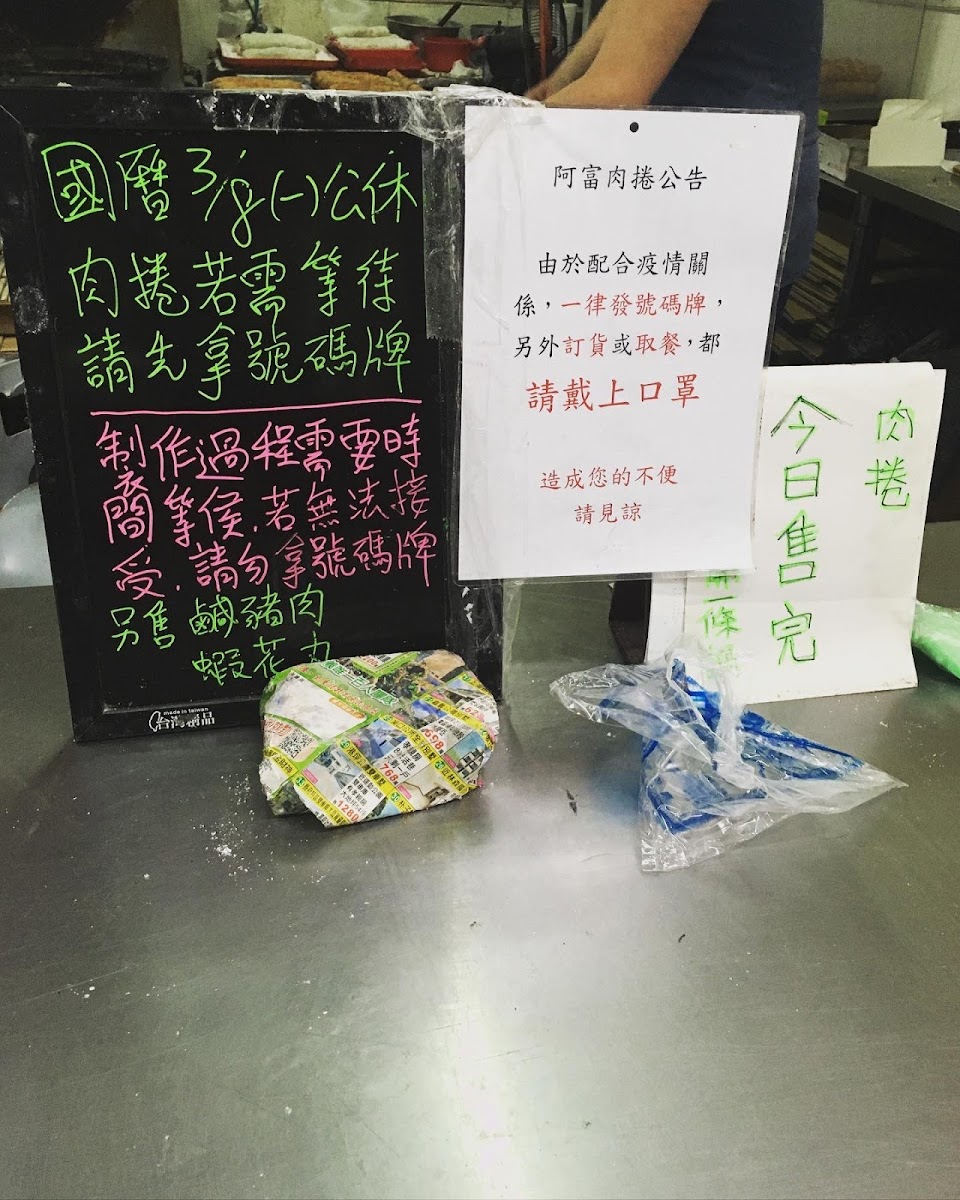 國曆3/9(一)公休
肉捲若需等待
請先拿號碼牌
制作過程需要時
間等侯.若無法接
受.請勿拿號碼牌
另售 鹹豬肉
蝦花丸
made in taiwan
台灣製品
阿富肉捲公告
由於配合疫情關
係，一律發號碼牌，
另外訂貨或取餐，都
請戴上口罩
造成您的不便
請見諒
肉捲
今日售完
一條
698
768
1280